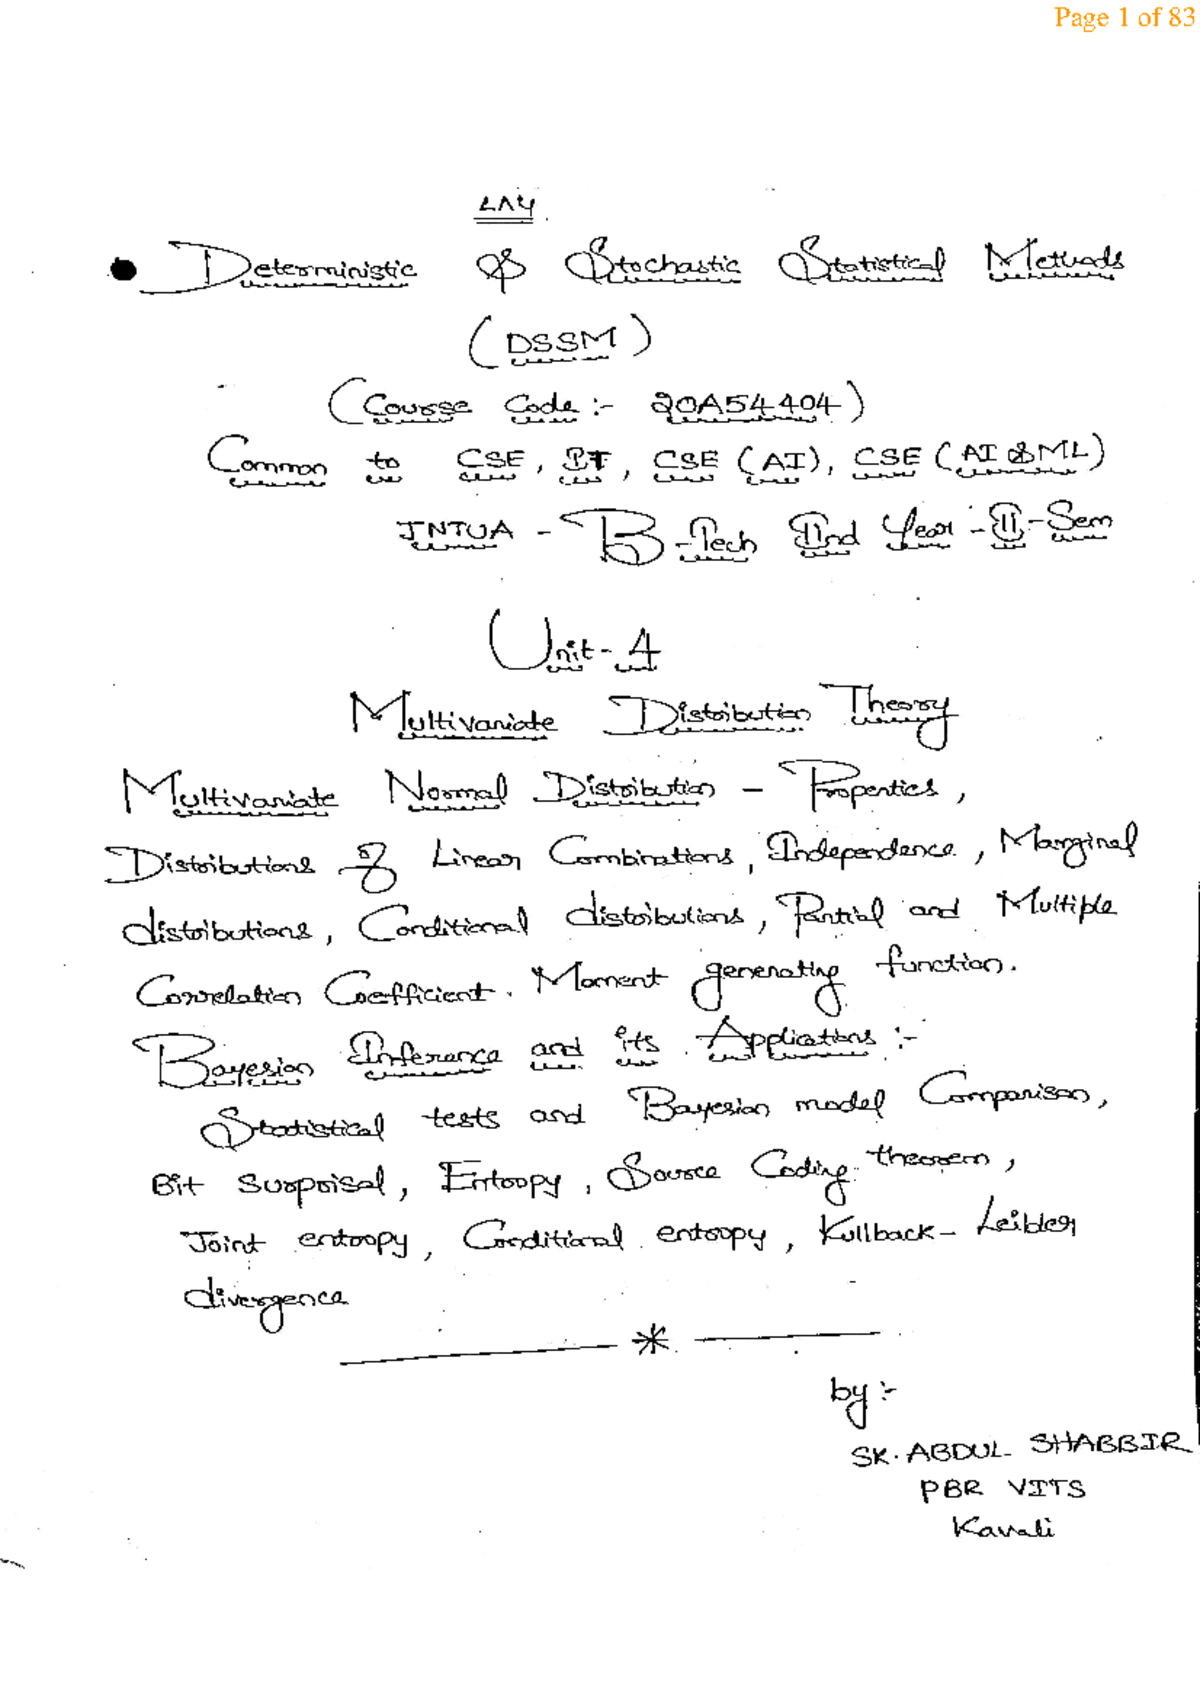 Page 1 of 83
Deterministic & Stochastic Statistical Methods
(DSSM)
(Course Code :- 20A54404)
Common to CSE, IT, CSE (AI), CSE (AI & ML)
JNTUA - B-Tech IInd Year - II - Sem
Unit - 4
Multivariate Distribution Theory
Multivariate Normal Distribution - Properties,
Distributions of Linear Combinations, Independence, Marginal
distributions, Conditional distributions, Partial and Multiple
Correlation Coefficient. Moment generating function.
Bayesian Inference and its Applications :-
Statistical tests and Bayesian model Comparison,
Bit surprisal, Entropy, Source Coding theorem,
Joint entropy, Conditional entropy, Kullback - Leibler
divergence
by :-
SK. ABDUL SHABBIR
PBR VITS
Kavali